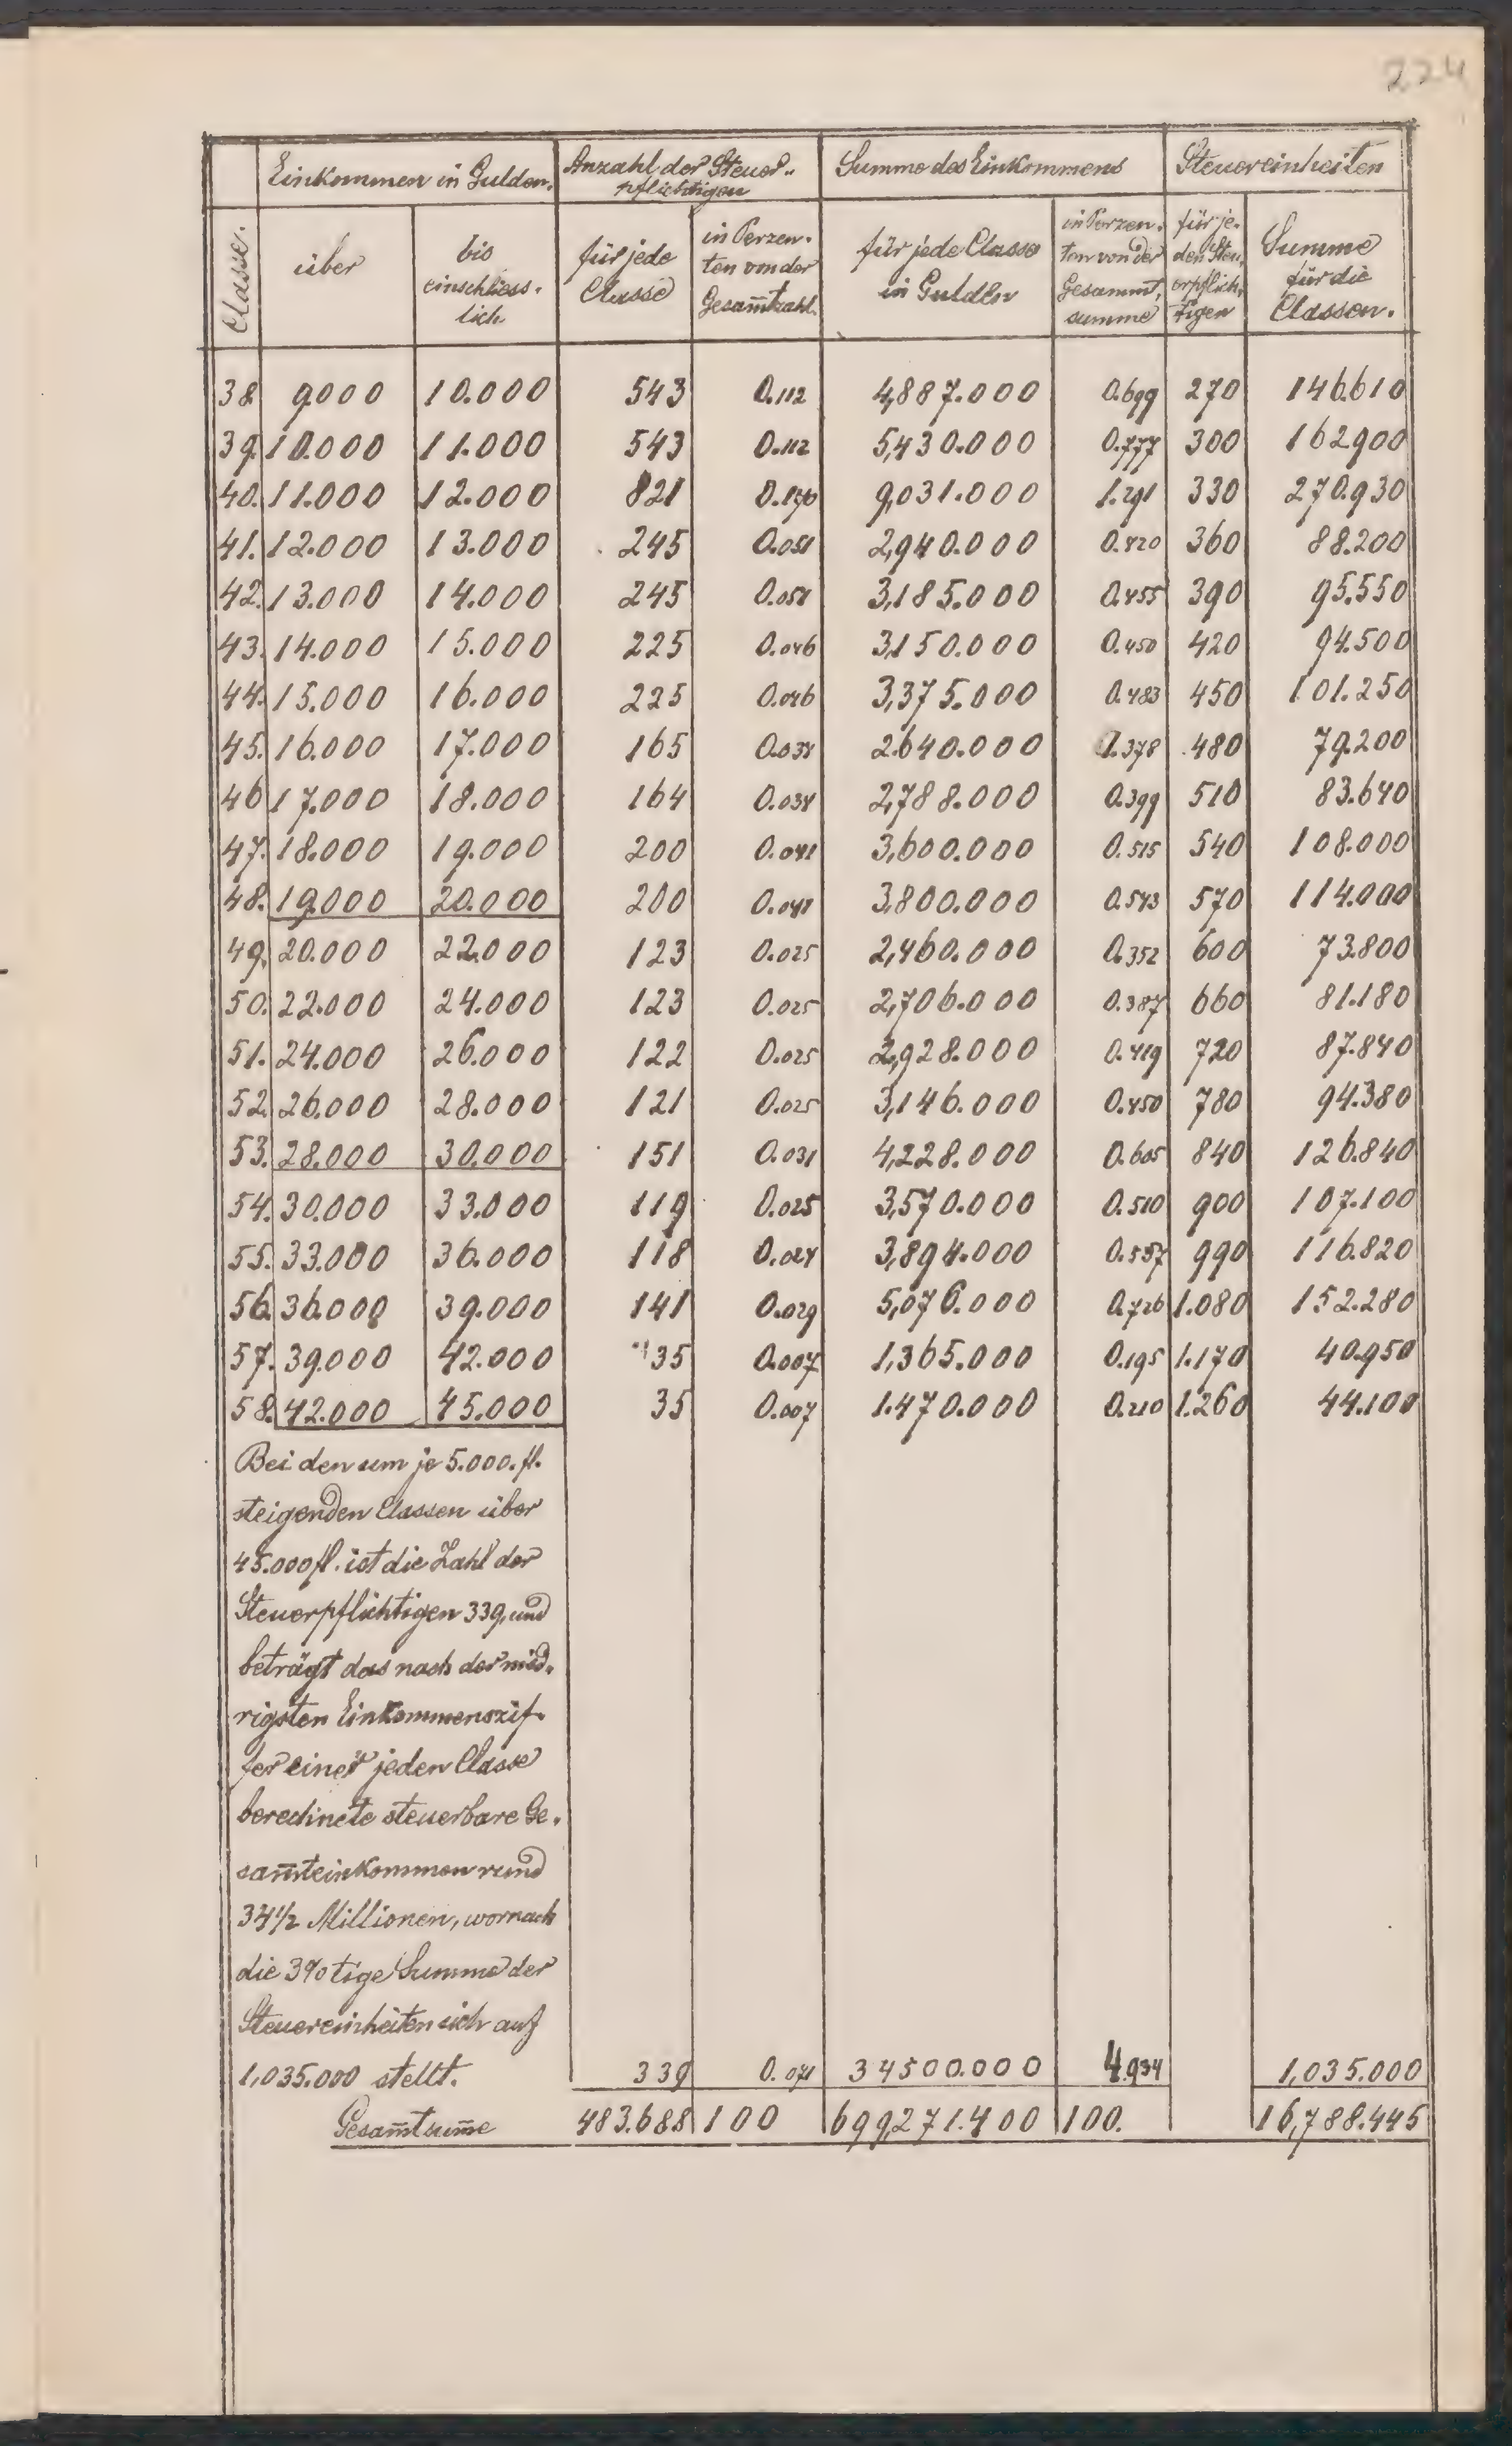 224
Einkommen in Gulden. Anzahl der Steuer- Summe des Einkommens Steuereinheiten
pflichtigen
Classe. über bis einschliess- lich für jede Classe in Perzen- ten von der Gesam̄tzahl. für jede Classe in Gulden in Perzen- ten von der Gesammt- summe für je- den Steu- erpflich- tigen Summe für die Classen.
38 9000 10.000 543 0.112 4,887.000 0.699 270 146.610
39. 10.000 11.000 543 0.112 5,430.000 0.777 300 162900
40. 11.000 12.000 821 0.170 9,031.000 1.291 330 270.930
41. 12.000 13.000 245 0.051 2,940.000 0.420 360 88.200
42. 13.000 14.000 245 0.051 3,185.000 0.455 390 95.550
43. 14.000 15.000 225 0.046 3,150.000 0.450 420 94.500
44. 15.000 16.000 225 0.046 3,375.000 0.483 450 101.250
45. 16.000 17.000 165 0.034 2.640.000 0.378 480 79.200
46 17.000 18.000 164 0.034 2,788.000 0.399 510 83.640
47. 18.000 19.000 200 0.041 3,600.000 0.515 540 108.000
48. 19.000 20.000 200 0.041 3,800.000 0.543 570 114.000
49. 20.000 22.000 123 0.025 2,460.000 0.352 600 73.800
50. 22.000 24.000 123 0.025 2,706.000 0.387 660 81.180
51. 24.000 26.000 122 0.025 2,928.000 0.419 720 87.840
52. 26.000 28.000 121 0.025 3,146.000 0.450 780 94.380
53. 28.000 30.000 151 0.031 4,228.000 0.605 840 126.840
54. 30.000 33.000 119 0.025 3,570.000 0.510 900 107.100
55. 33.000 36.000 118 0.024 3,894.000 0.557 990 116.820
56. 36.000 39.000 141 0.029 5,076.000 0.726 1.080 152.280
57. 39.000 42.000 35 0.007 1,365.000 0.195 1.170 40.950
58. 42.000 45.000 35 0.007 1.470.000 0.210 1.260 44.100
Bei den um je 5.000. fl.
steigenden Classen über
45.000 fl. ist die Zahl der
Steuerpflichtigen 339, und
beträgt das nach der nied-
rigsten Einkommenszif-
fer einer jeden Classe
berechnete steuerbare Ge-
sam̄teinkommen rund
34½ Millionen, wornach
die 3%tige Summe der
Steuereinheiten sich auf
1,035.000 stellt. 339 0.071 34500.000 4.934 1,035.000
Gesam̄tsum̄e 483.688 100 699,271.400 100. 16,788.445